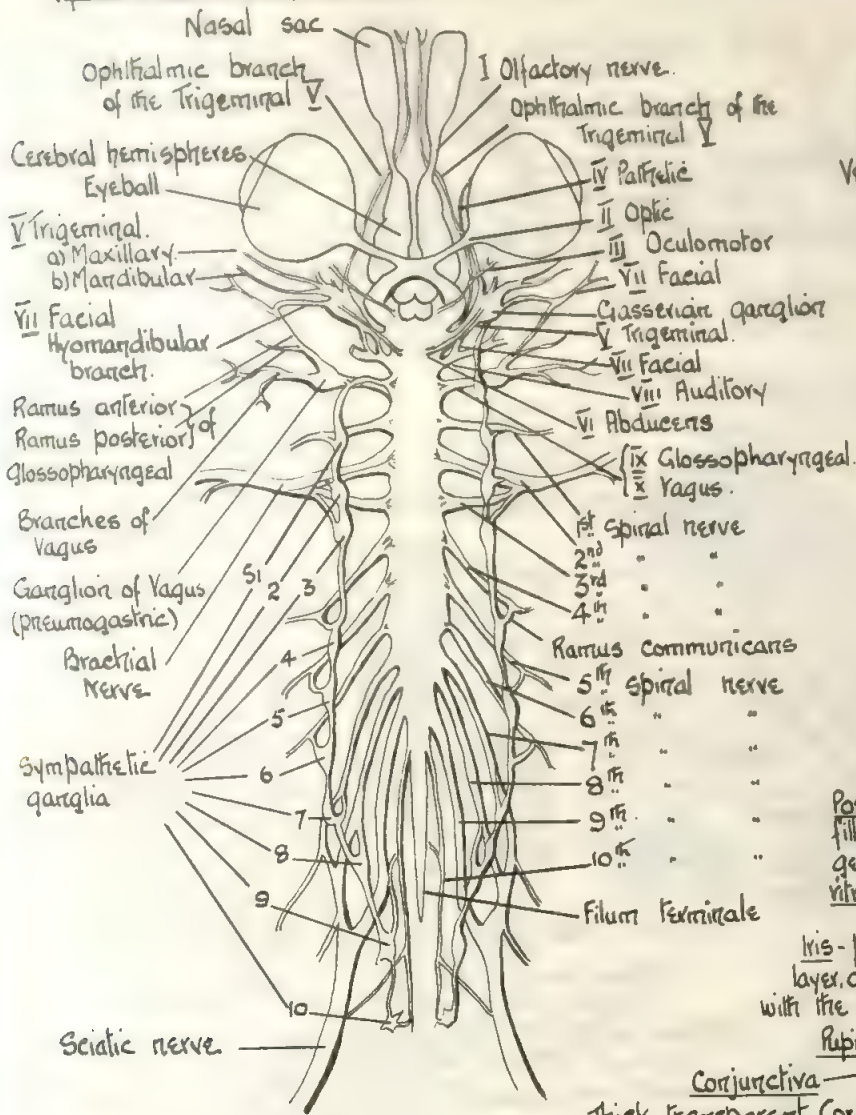 Nasal sac
Ophthalmic branch
of the Trigeminal V
Cerebral hemispheres
Eyeball
V Trigeminal.
a) Maxillary
b) Mandibular
VII Facial
Hyomandibular
branch.
Ramus anterior } of
Ramus posterior
glossopharyngeal
Branches of
Vagus
Ganglion of Vagus
(pneumogastric)
Brachial
Nerve
S1
2
3
4
5
6
7
8
9
10
Sympathetic
ganglia
Sciatic nerve
I Olfactory nerve.
Ophthalmic branch of the
Trigeminal V
IV Pathetic
II Optic
III Oculomotor
VII Facial
Gasserian ganglion
V Trigeminal.
VII Facial
VIII Auditory
VI Abducens
{ IX Glossopharyngeal.
X Vagus.
1st spinal nerve
2nd " "
3rd " "
4th " "
Ramus communicans
5th spinal nerve
6th " "
7th " "
8th " "
9th " "
10th " "
Filum terminale
Iris -
layer,
with the
Conjunctiva